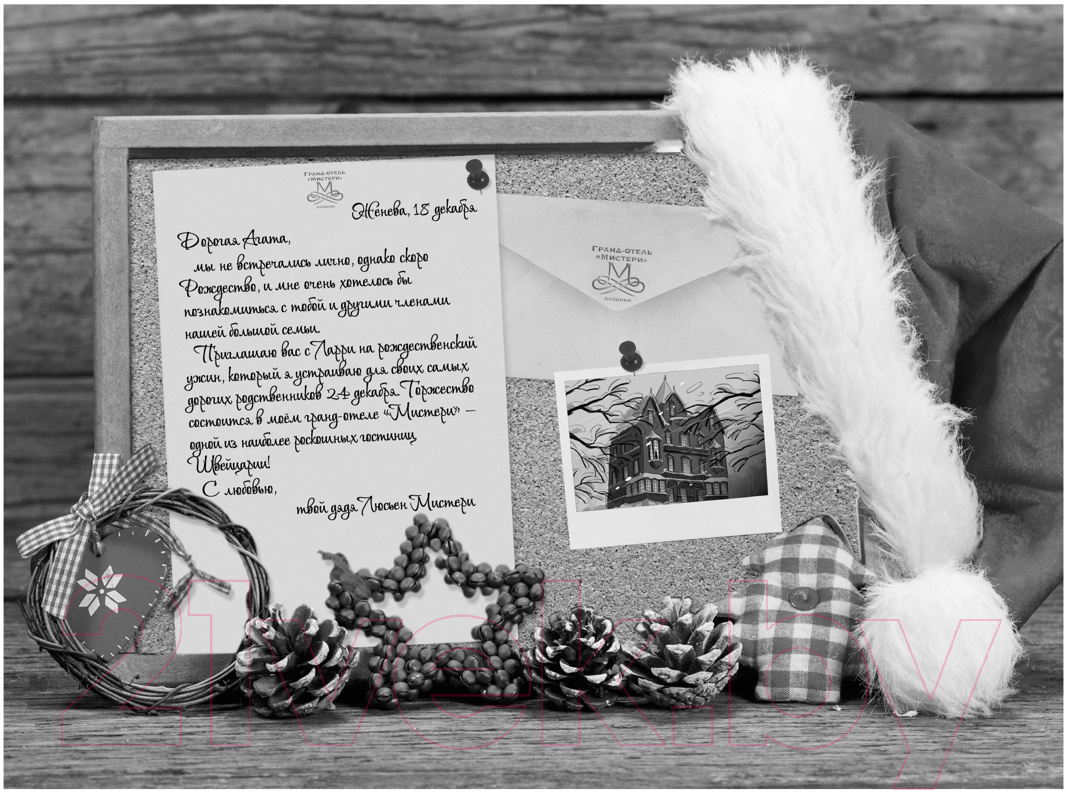 ГРАНД-ОТЕЛЬ
«МИСТЕРИ»
М
ЛОЗАННА
Женева, 18 декабря
Дорогая Агата,
мы не встречались лично, однако скоро
Рождество, и мне очень хотелось бы
познакомиться с тобой и другими членами
нашей большой семьи.
Приглашаю вас с Ларри на рождественский
ужин, который я устраиваю для своих самых
дорогих родственников 24 декабря. Торжество
состоится в моём гранд-отеле «Мистери» —
одной из наиболее роскошных гостиниц
Швейцарии!
С любовью,
твой дядя Люсьен Мистери
ГРАНД-ОТЕЛЬ
«МИСТЕРИ»
М
ЛОЗАННА
21vek.by